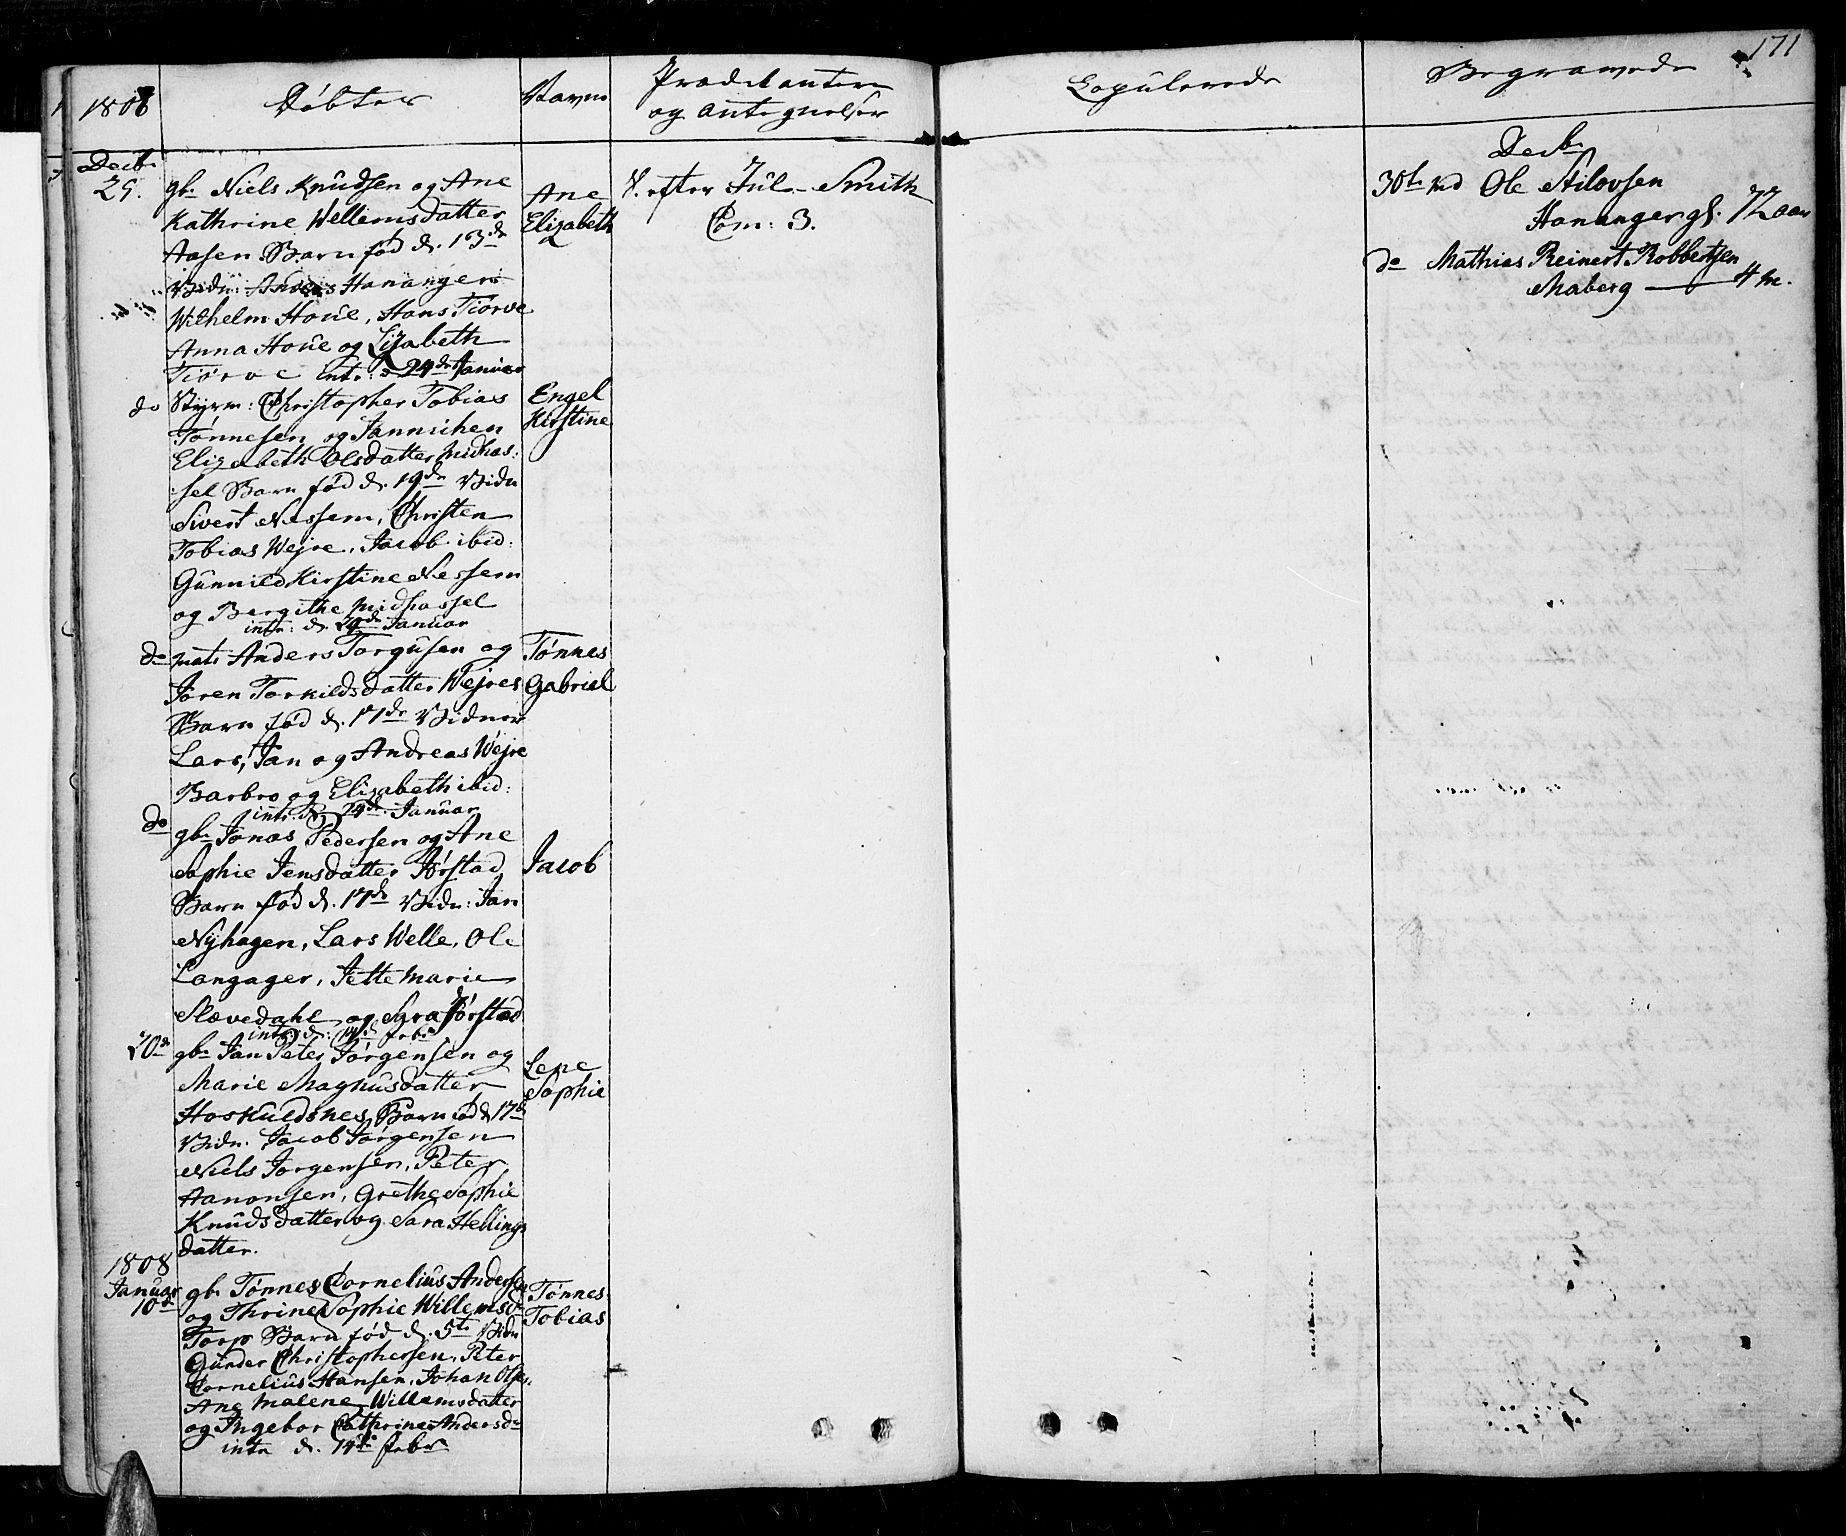 171
1807
Døbte
Navne
Prædikanter
og antegnelser
Copulerede
Begravede
Decbr
29. gbr Niels Knudsen og Ane
Kathrine Wellemsdatter
Aasen Barn fød d. 13de
Vidn: Anders Hananger
Wilhelm Houe, Hans Tiørve
Anna Houe og Lizabeth
Tiørve intr: d 24de Januar
Ane
Elizabeth
S. efter Jul - Smith
Com: 3.
do Styrm: Christopher Tobias
Tønnesen og Jannichen
Elizabeth Olsdatter Midhas:
sel Barn fød d. 19de Vidn
Sivert Nessem, Christen
Tobias Wejre, Jacob ibid:
Gunnild Kirstine Nessem
og Bergithe Midhassel
intr: d. 29de Januar
Engel
Kirstine
do mats Anders Torgusen og
Joren Torkildsdatter Wejres
Barn fød d. 17de Vidner
Lars, Jan og Andreas Wejre
Barbro og Elizabeth ibid:
intr. d. 24de Januar
Tønnes
Gabriel
do gbr Jonas Pedersen og Ane
Sophie Jensdatter Jørstad
Barn fød d. 17de Vidn: Jan
Nyhagen, Lars Welle, Ole
Langager, Jette Marie
Slævedahl og Syra Jørstad
intr: d: 14d febr
Jacob
20de gbr Jan Peter Jørgensen og
Marie Magnusdatter
Hoskuldsnes Barn fød d 17d
Vidn. Jacob Jørgensen
Niels Jørgensen, Peter
Aanonsen, Grethe Sophie
Knudsdatter og Sara Hellings
datter.
Lene
Sophie
1808
Januar
10d gbr Tønnes Cornelius Andersen
og Thrine Sophie Willemsdr
Torp Barn fød d. 5te Vidn
Gunder Christophersen, Peter
Cornelius Hansen, Johan Olsen,
Ane Malene Willemsdatter
og Ingebor Cathrine Andersdr
intr d. 14de febr
Tønnes
Tobias
Decbr
30te nd Ole Stilovsen
Hananger gl. 72 aar
do Mathias Reinert Robbertsen
Maberg — 4 m.